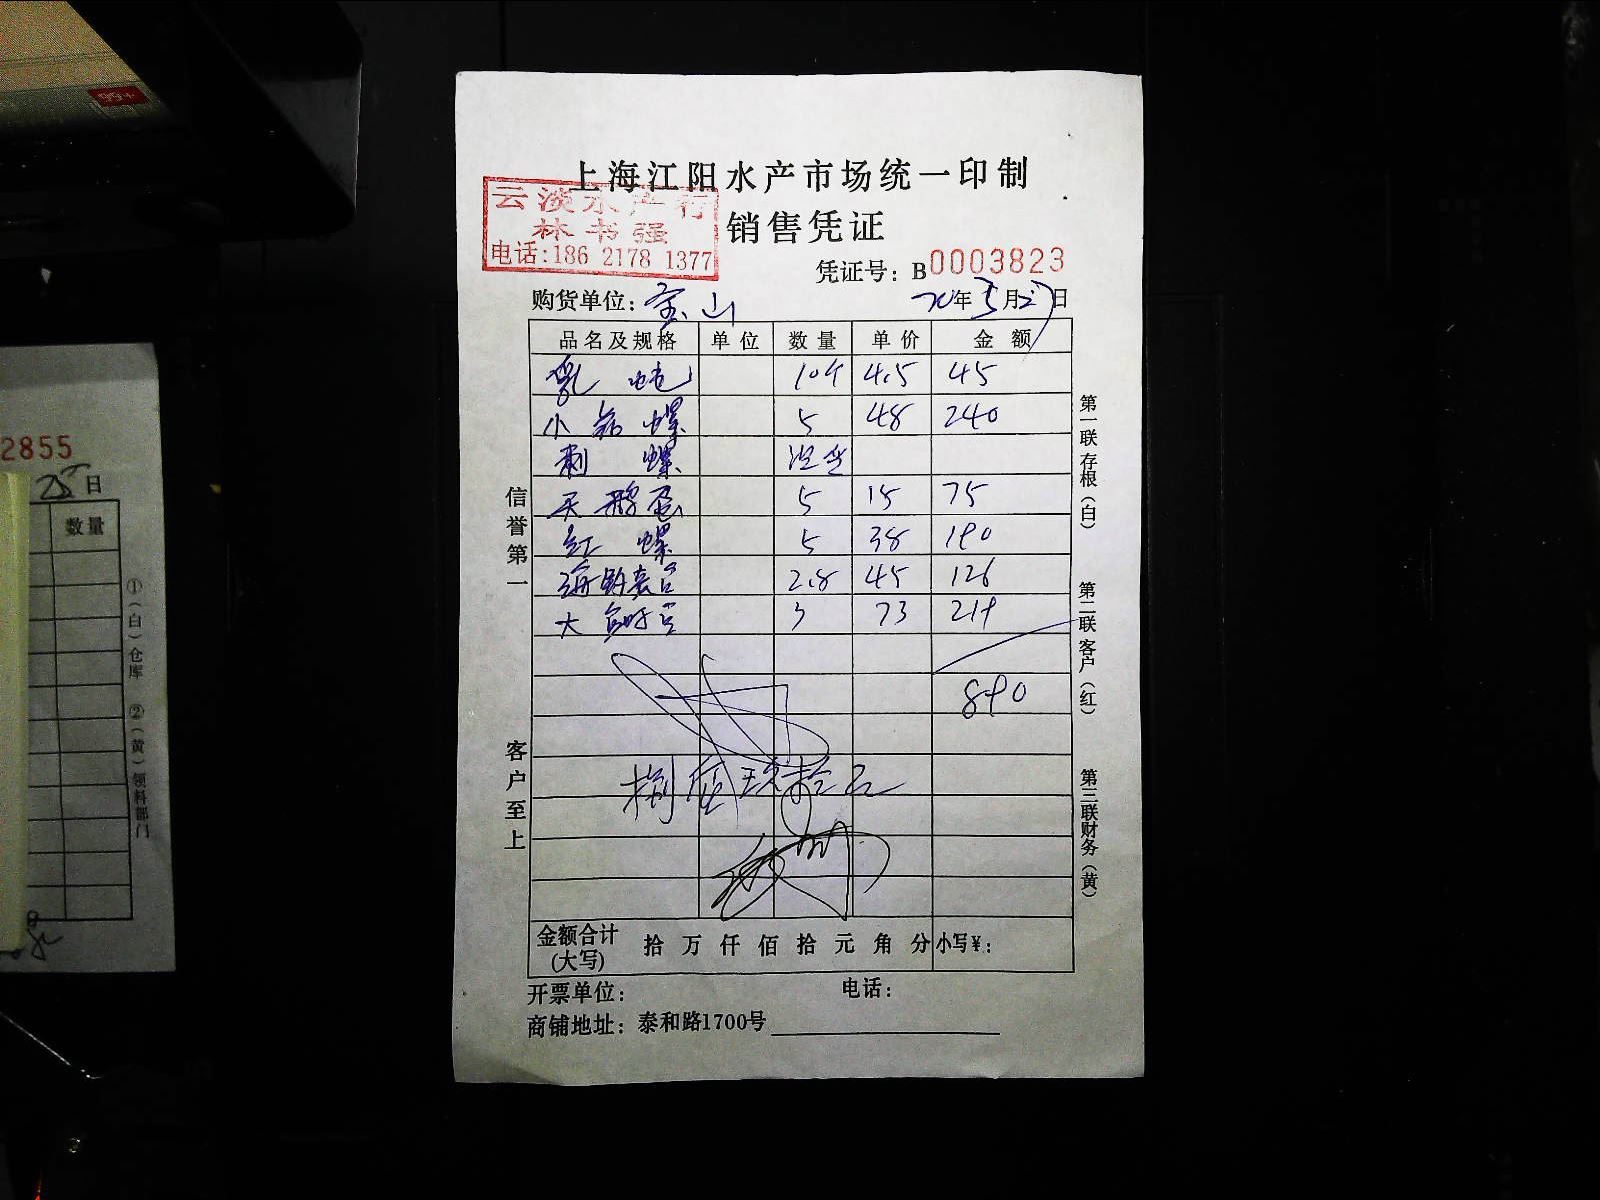 99+
上海江阳水产市场统一印制
云淡水产行
林书强
电话:186 2178 1377
销售凭证
凭证号: B0003823
购货单位: 宝山
20年5月27日
品名及规格 单位 数量 单价 金额
乳 10个 4.5 45
小 螺 5 48 240
刺 螺
天鹅蛋 5 15 75
红 螺 5 38 190
海 2.8 45 126
大 3 73 219
890
捌佰玖拾元
金额合计(大写) 拾 万 仟 佰 拾 元 角 分 小写¥:
开票单位: 电话:
商铺地址: 泰和路1700号
信誉第一
客户至上
第一联存根(白)
第二联客户(红)
第三联财务(黄)
2855
25日
数量
①(白)仓库 ②(黄)领料部门